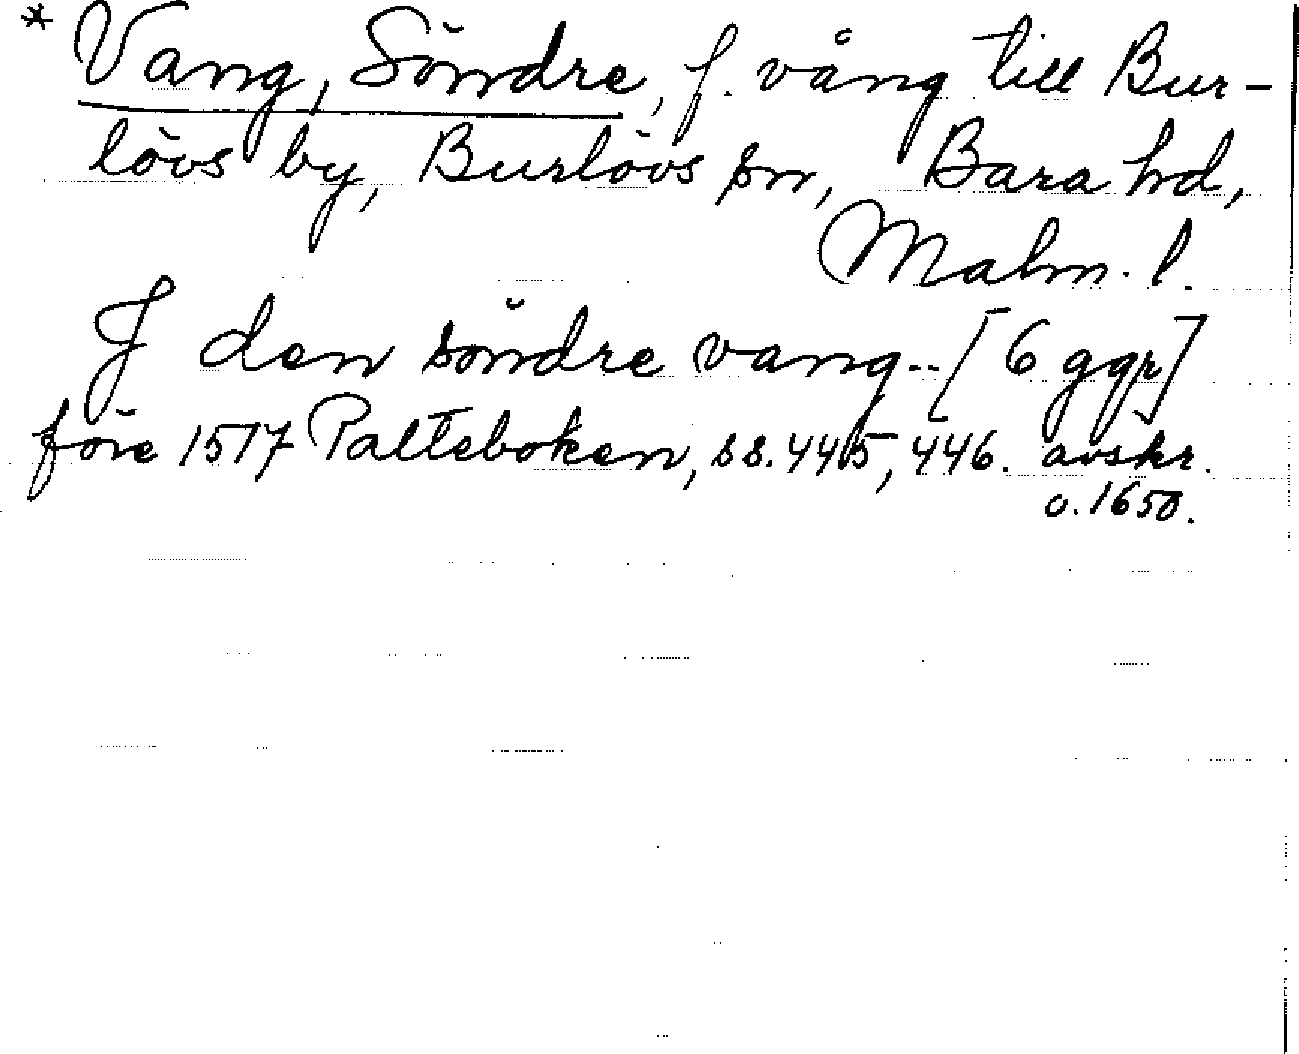 * Vang, Söndre, f. vång till Bur-
lövs by, Burlövs sn, Bara hd,
Malm. l.
J den söndre vang.. [6 ggr]
före 1517 Palteboken, ss. 445, 446. avskr.
o. 1650.